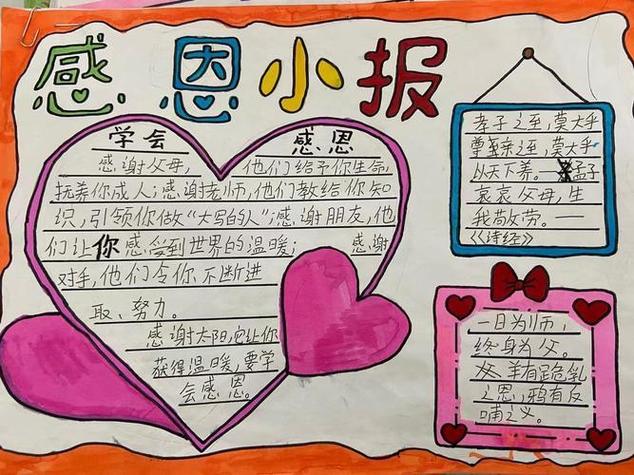 感恩小报
学会 感恩
感谢父母，他们给予你生命，
抚养你成人；感谢老师，他们教给你知
识，引领你做“大写的人”；感谢朋友，他
们让你感受到世界的温暖； 感谢
对手，他们令你不断进
取、努力。
感谢太阳，它让你
获得温暖，要学
会感恩。
孝子之至，莫大乎
尊亲之至，莫大乎
以天下养。 孟子
哀哀父母，生
我劬劳。——
《诗经》
一日为师，
终身为父。
羊有跪乳
之恩，鸦有反
哺之义。